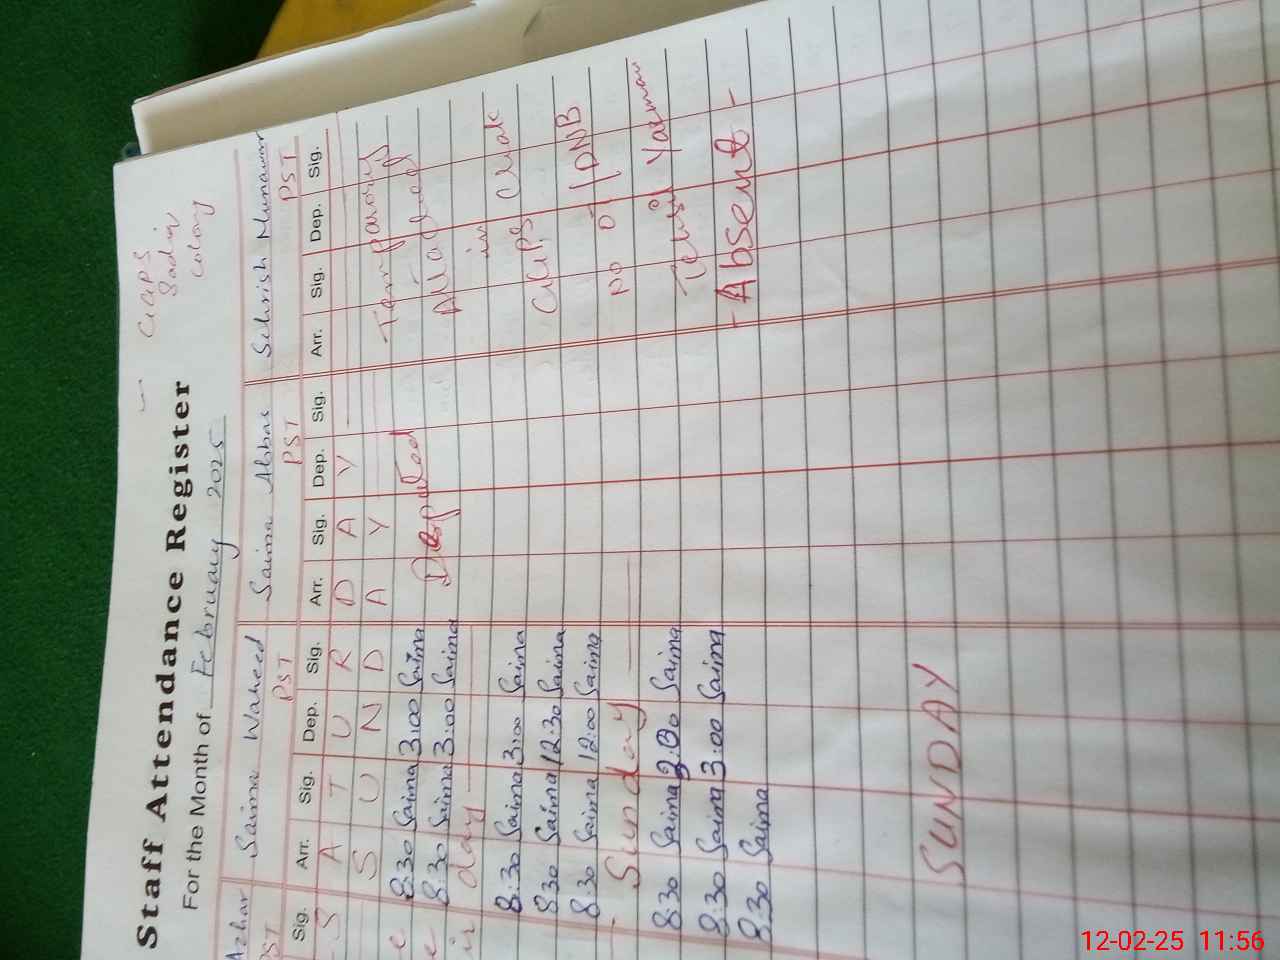 GGPS
Sadiq
Colony
Staff Attendance Register
For the Month of February 2025
Azhar Saima Waheed Saima Abbas Sehrish Munawar
PST PST PST PST
Sig. Arr. Sig. Dep. Sig. Arr. Sig. Dep. Sig. Arr. Sig. Dep. Sig.
S A T U R D A Y
S U N D A Y
8:30 Saima 3:00 Saima
8:30 Saima 3:00 Saima
day
8:30 Saima 3:00 Saima
8:30 Saima 12:30 Saima
8:30 Saima 12:00 Saima
Sunday
8:30 Saima Saima
8:30 Saima 3:00 Saima
8:30 Saima
SUNDAY
Attached
in
GGPS Chak
no 07/DNB
Yazman
- Absent -
12-02-25 11:56